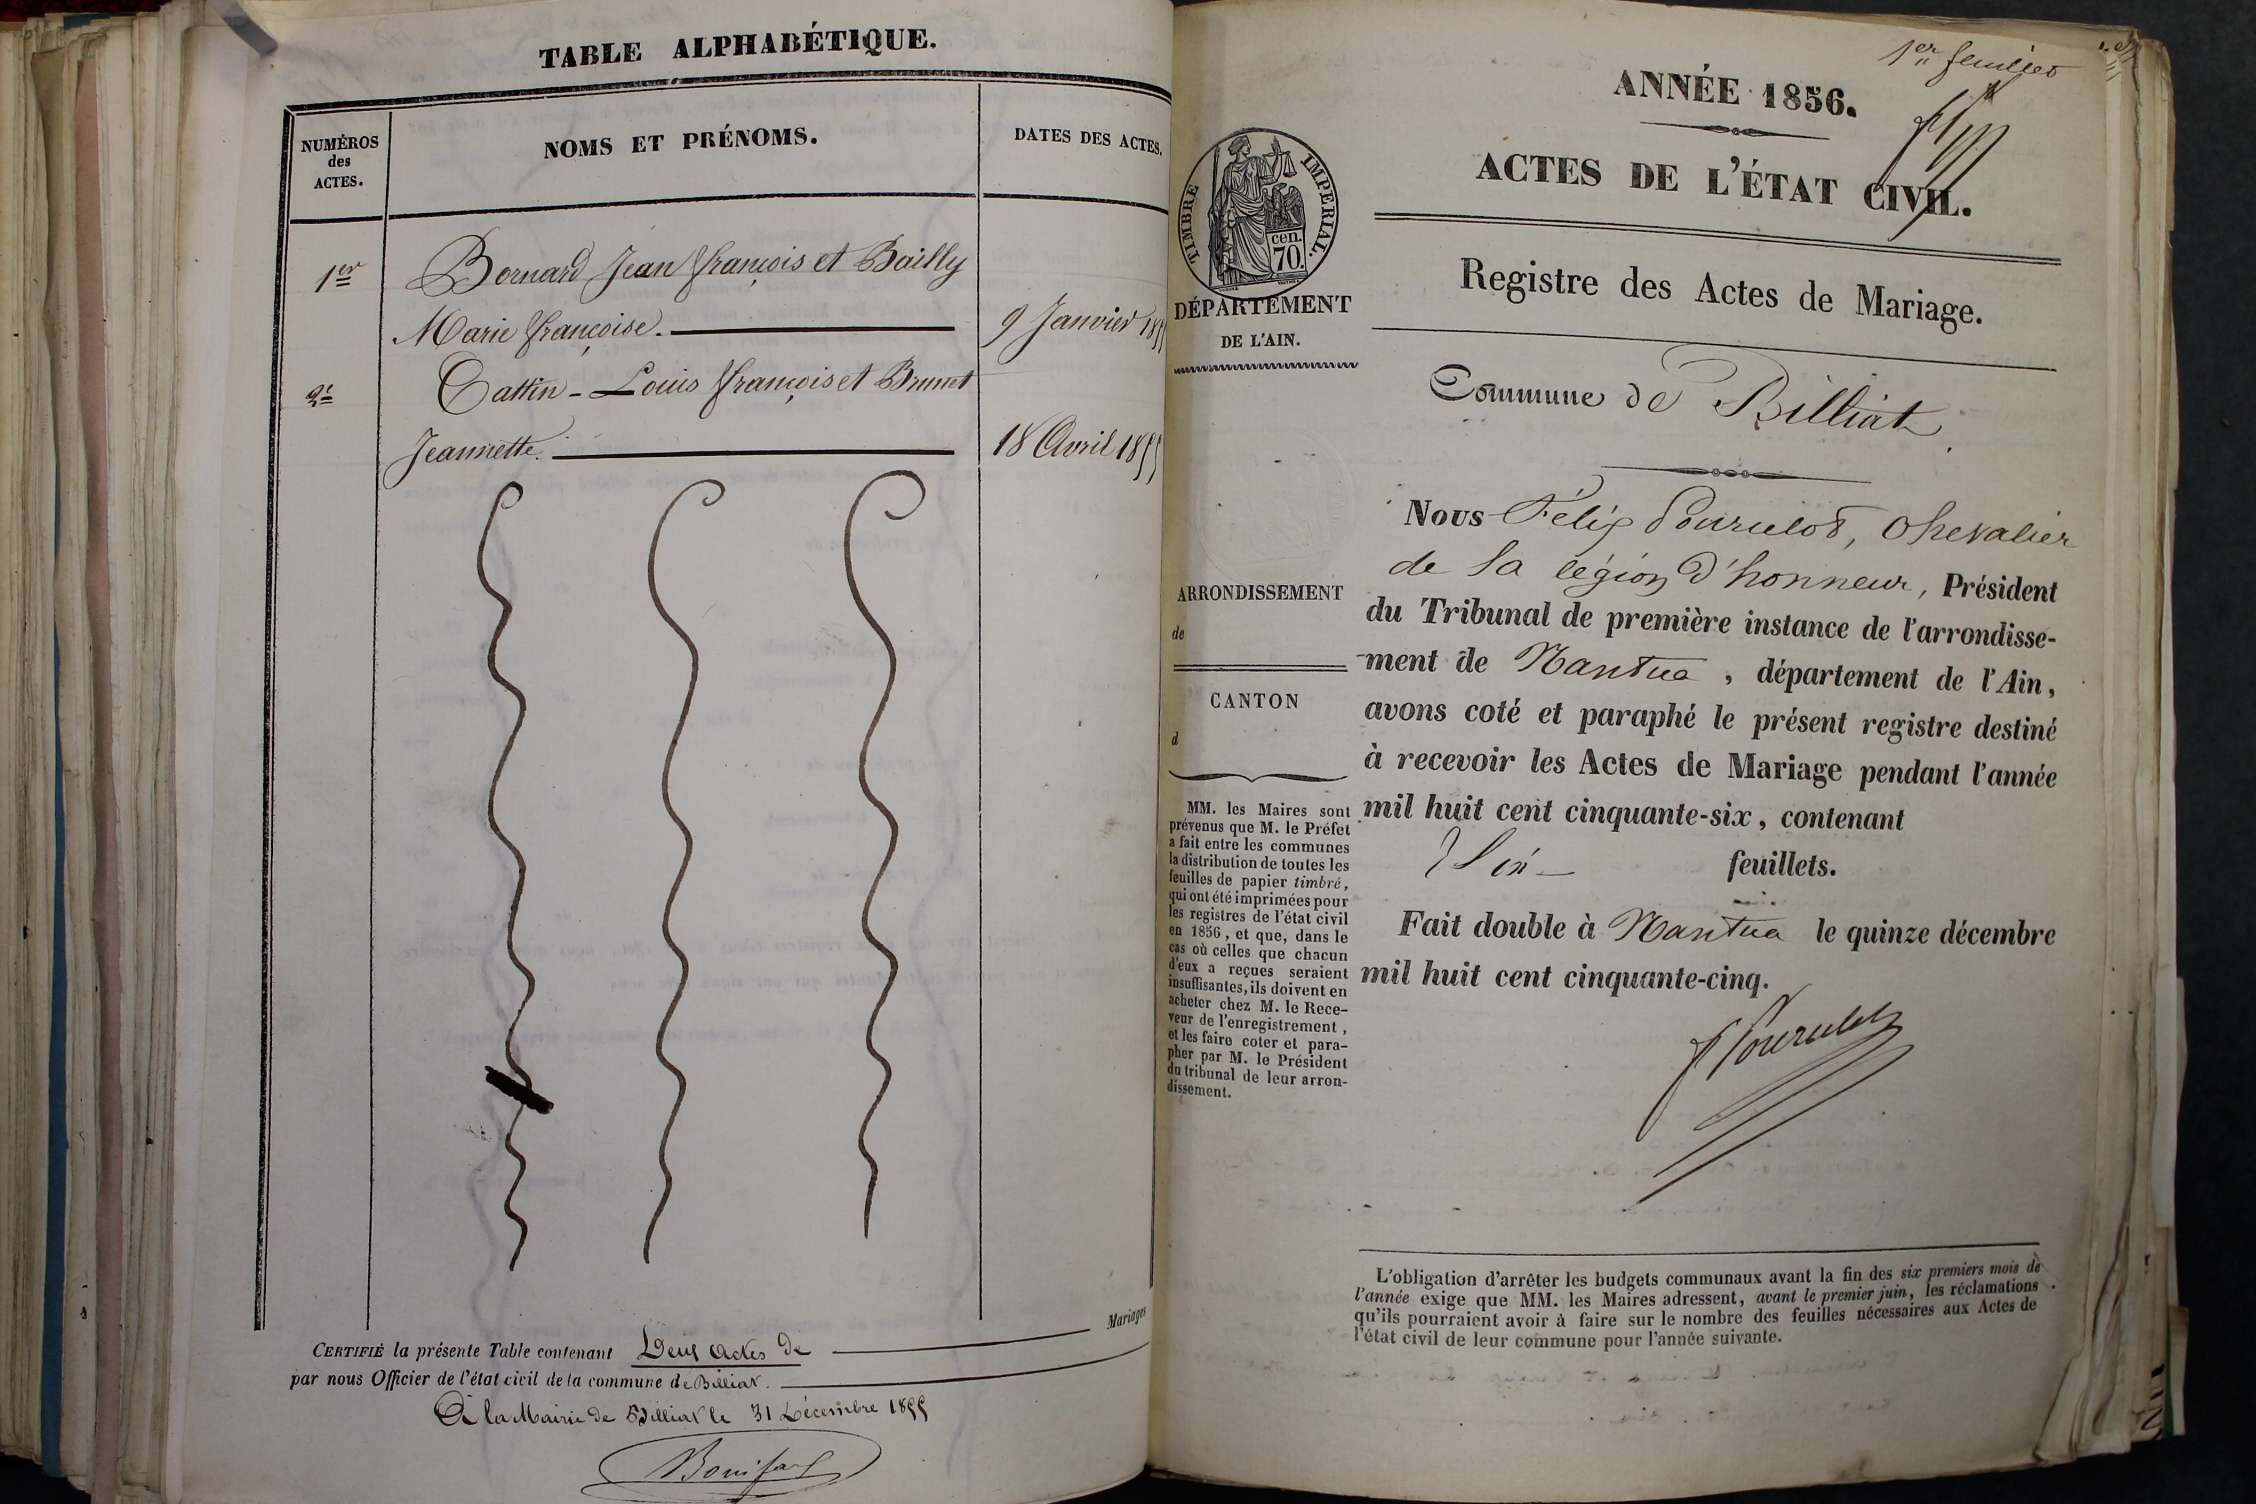 TABLE ALPHABÉTIQUE.
NUMÉROS
des
ACTES.
NOMS ET PRÉNOMS.
DATES DES ACTES.
1er Bornard Jean François et Bailly
Marie Françoise. 9 Janvier 1855
2e Cattin - Louis François et Brunet
Jeannette. 18 Avril 1855
Mariages
CERTIFIÉ la présente Table contenant Deux actes de
par nous Officier de l'état civil de la commune de Billiat.
A la Mairie de Billiat le 31 Décembre 1855
1er feuillet
ANNÉE 1856.
ACTES DE L'ÉTAT CIVIL.
TIMBRE IMPÉRIAL.
cen.
70.
DÉPARTEMENT
DE L'AIN.
Registre des Actes de Mariage.
Commune de Billiat
ARRONDISSEMENT
de
CANTON
d
MM. les Maires sont
prévenus que M. le Préfet
a fait entre les communes
la distribution de toutes les
feuilles de papier timbré,
qui ont été imprimées pour
les registres de l'état civil
en 1856, et que, dans le
cas où celles que chacun
d'eux a reçues seraient
insuffisantes, ils doivent en
acheter chez M. le Rece-
veur de l'enregistrement,
et les faire coter et para-
pher par M. le Président
du tribunal de leur arron-
dissement.
Nous Félix Pourulot, Chevalier
de la légion d'honneur, Président
du Tribunal de première instance de l'arrondisse-
ment de Nantua, département de l'Ain,
avons coté et paraphé le présent registre destiné
à recevoir les Actes de Mariage pendant l'année
mil huit cent cinquante-six, contenant
feuillets.
Fait double à Nantua le quinze décembre
mil huit cent cinquante-cinq.
L'obligation d'arrêter les budgets communaux avant la fin des six premiers mois de
l'année exige que MM. les Maires adressent, avant le premier juin, les réclamations
qu'ils pourraient avoir à faire sur le nombre des feuilles nécessaires aux Actes de
l'état civil de leur commune pour l'année suivante.